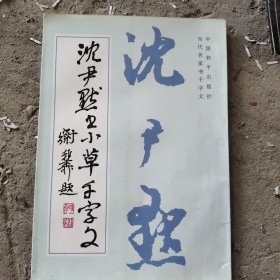 中国和平出版社
当代名家书千字文
沈尹默
沈尹默书小草千字文
谢稚柳题